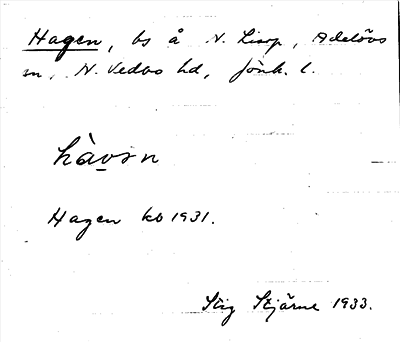 Hagen, bs å N. Lisrp, Adelövs
sn, N. Vedbo hd, Jönk. l.
Hagen kb 1931.
Stig Stjärne 1933.